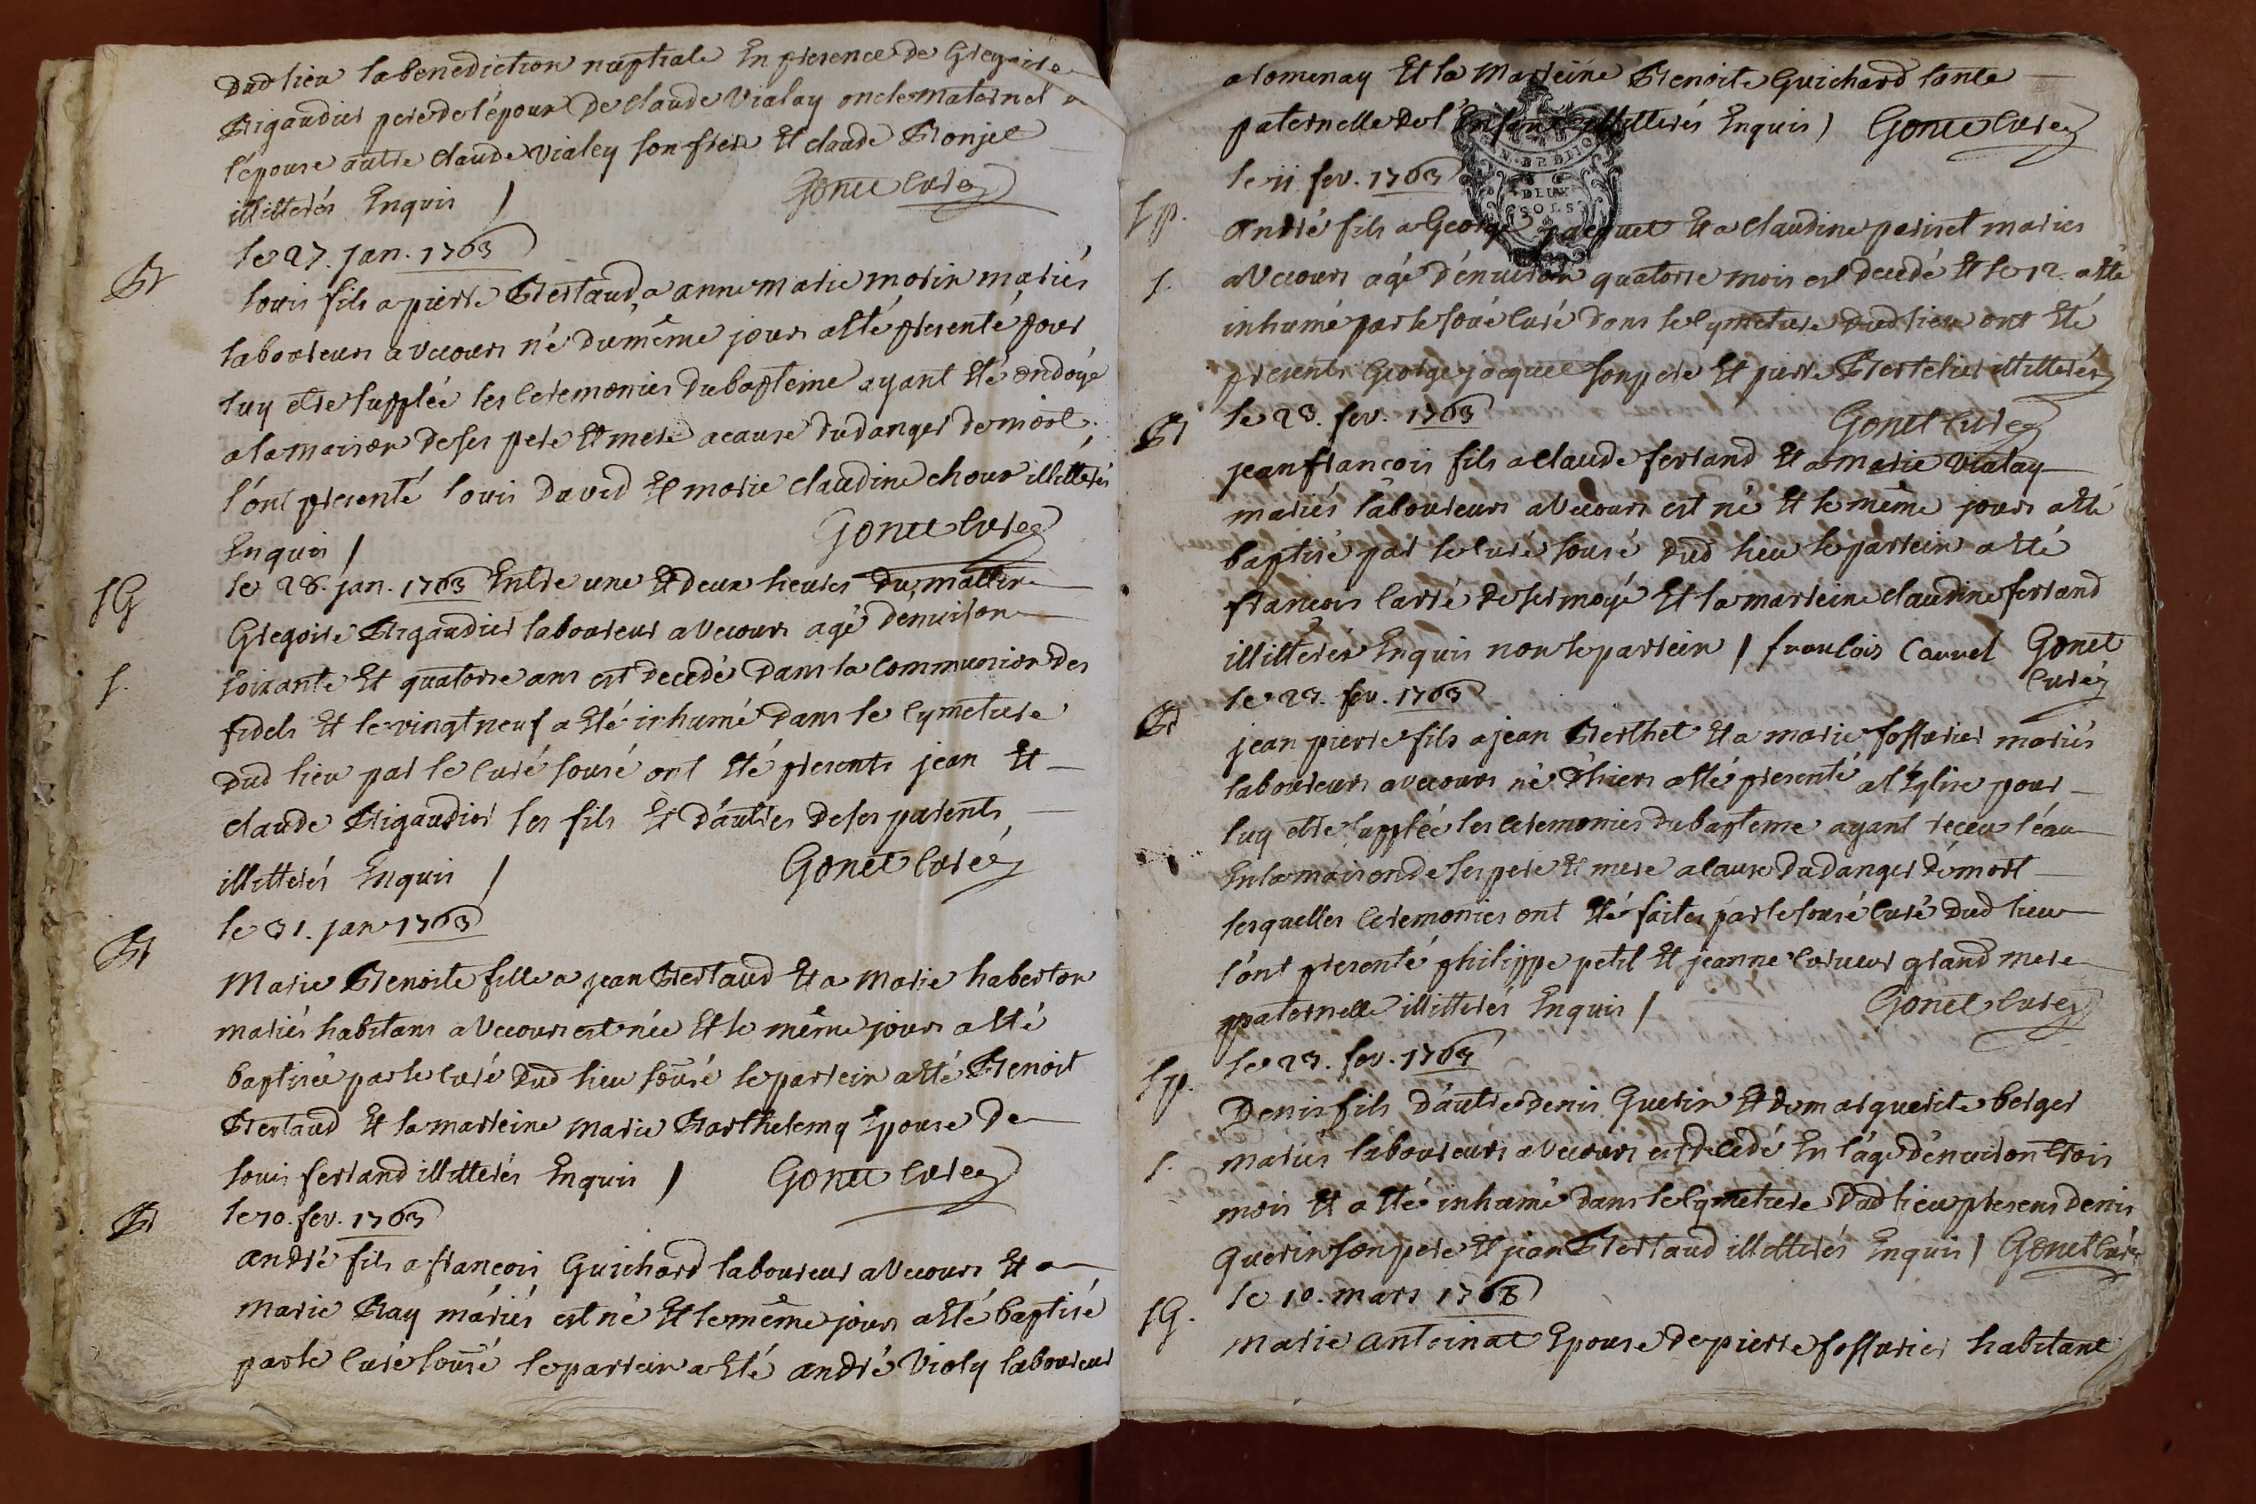 dud lieu la benediction nuptiale En presence de Gregoire
Rigaudier pere de l'époux De claude Vialay oncle maternel a
l'épouse autre claude vialey son frere Et claude Ronjet
illitterés Enquis / Gonet Curé
Bt
le 27. jan. 1763
louis fils a pierre Bertaud a anne marie morin mariés
laboureurs a Vecours né du même jours a été presenté pour
luy etre supplée les Ceremonies du bapteme ayant Eté ondoyé
a la maison de ses pere Et mere a cause du danger de mort,
l'ont presenté louis David Et marie claudine choux illitterés
Enquis / Gonet Curé
SG
le 28. jan. 1763 Entre une Et deux heures du mattin
Gregoire Rigaudier laboureur a Vecours agé d'environ
S.
soixante Et quatorse ans est decedé Dans la Communion des
fidels Et le vingt neuf a Eté inhumé Dans le Cymetiere
dud lieu par le Curé sousé ont Eté presents jean Et
claude Rigaudier ses fils Et d'autres de ses parents
illitterés Enquis / Gonet Curé
Bt
le 31. jan 1763
Marie Benoite fille a jean Bertaud Et a Marie haberton
mariés habitans a Vecours est née Et le même jours a Eté
baptisée par le Curé Dud lieu sousé le parrein a Eté Benoit
Bertaud Et la marreine Marie Barthelemy Epouse De
louis ferrand illitterés Enquis / Gonet Curé
Bt
le 10. fev. 1763
andré fils a francois Guichard laboureur a Vecours Et a
Marie Ray mariés est né Et le même jours a Eté baptisé
par le Curé sousé le parrein a Eté andré Violy laboureur
a lomenay Et la Marreine Benoite Guichard tante
paternelle de l'Enfant illitterés Enquis / Gonet Curé
le 11 fev. 1763
DEUX
SOLS
Sp.
André fils a George jacquet Et a Claudine perinet maries
S.
a Vecours agé d'environ quatorse mois est decedé Et le 12. a Eté
inhumé par le sousé Curé Dans le Cymetiere dud lieu ont Eté
presents George jacquet son pere Et pierre Bertelier illitterés
Gonet Curé
Bt
le 23. fev. 1763
jean francois fils a Claude ferrand Et a marie Vialay
mariés laboureurs a Vecours est né Et le même jours a Eté
baptisé par le Curé sousé dud lieu le parrein a Eté
francois Carré de sermoyé Et la marreine claudine ferrand
illitterés Enquis non le parrein / francois Carrel Gonet
Curé
Bt
le 23. fev. 1763
jean pierre fils a jean Berthet Et a marie fossurier mariés
laboureurs a Vecours né d'hiers a Eté presenté a l'Eglise pour
luy etre supplée les ceremonies du bapteme ayant receu l'eau
En la maison de ses pere Et mere a Cause du danger de mort
lesquelles Ceremonies ont Eté faites par le sousé Curé dud lieu
l'ont presenté philippe petit Et jeanne grand mere
paternelle illitterés Enquis / Gonet Curé
Sp.
le 23. fev. 1763
Denis fils d'autre denis Guerin Et de marguerite berger
S.
mariés laboureurs a Vecours est decedé En l'age d'environ trois
mois Et a Eté inhumé Dans le Cymetiere Dud lieu presens denis
Guerin son pere Et jean Bertaud illitterés Enquis / Gonet Curé
SG.
le 10. mars 1763
Marie antoinat Epouse de pierre fossurier habitant